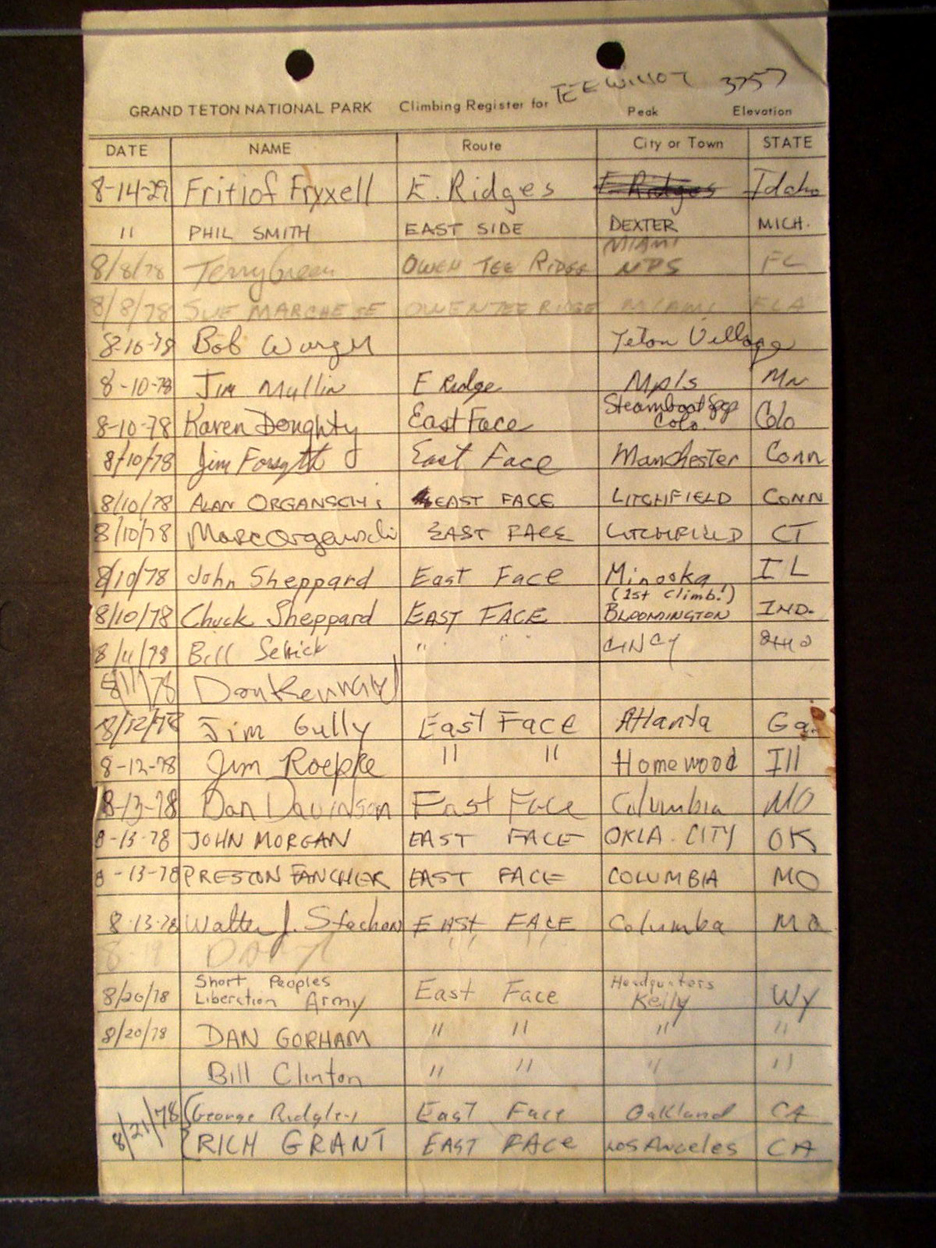 TEEWINOT 3757
GRAND TETON NATIONAL PARK Climbing Register for Peak Elevation
DATE NAME Route City or Town STATE
8-14-29 Fritiof Fryxell E. Ridges E. Ridges Idaho
11 PHIL SMITH EAST SIDE DEXTER MICH.
MIAMI
8/8/78 Terry Green OWEN TEE RIDGE NPS FL
8/8/78 SUE MARCHESE OWEN TEE RIDGE MIAMI FLA
8-10-78 Bob Teton Village
8-10-78 Jim Mullin E Ridge Mpls Mn
8-10-78 Karen Doughty East Face Steamboat Spgs Colo
Colo.
8/10/78 Jim Forsyth East Face Manchester Conn
8/10/78 ALAN ORGANSCHI EAST FACE LITCHFIELD CONN
8/10/78 Marc Organschi EAST FACE LITCHFIELD CT
8/10/78 John Sheppard East Face Minooka IL
(1st climb!)
8/10/78 Chuck Sheppard EAST FACE BLOOMINGTON IND.
8/11/78 Bill " " CINCY OHIO
8/11/78 Don
8/12/78 Jim Gully East Face Atlanta Ga.
8-12-78 Jim Roepke " " Homewood Ill
8-13-78 Dan Davinson East Face Columbia MO
8-13-78 JOHN MORGAN EAST FACE OKLA. CITY OK
8-13-78 PRESTON FANCHER EAST FACE COLUMBIA MO
8-13-78 Walter J. Stachon EAST FACE Columba MO
8-19 " "
Short Peoples Headquarters
8/20/78 Liberation Army East Face Kelly Wy
8/20/78 DAN GORHAM " " " "
Bill Clinton " " " "
8/21/78 George Ridgley East Face Oakland CA
RICH GRANT EAST FACE Los Angeles CA